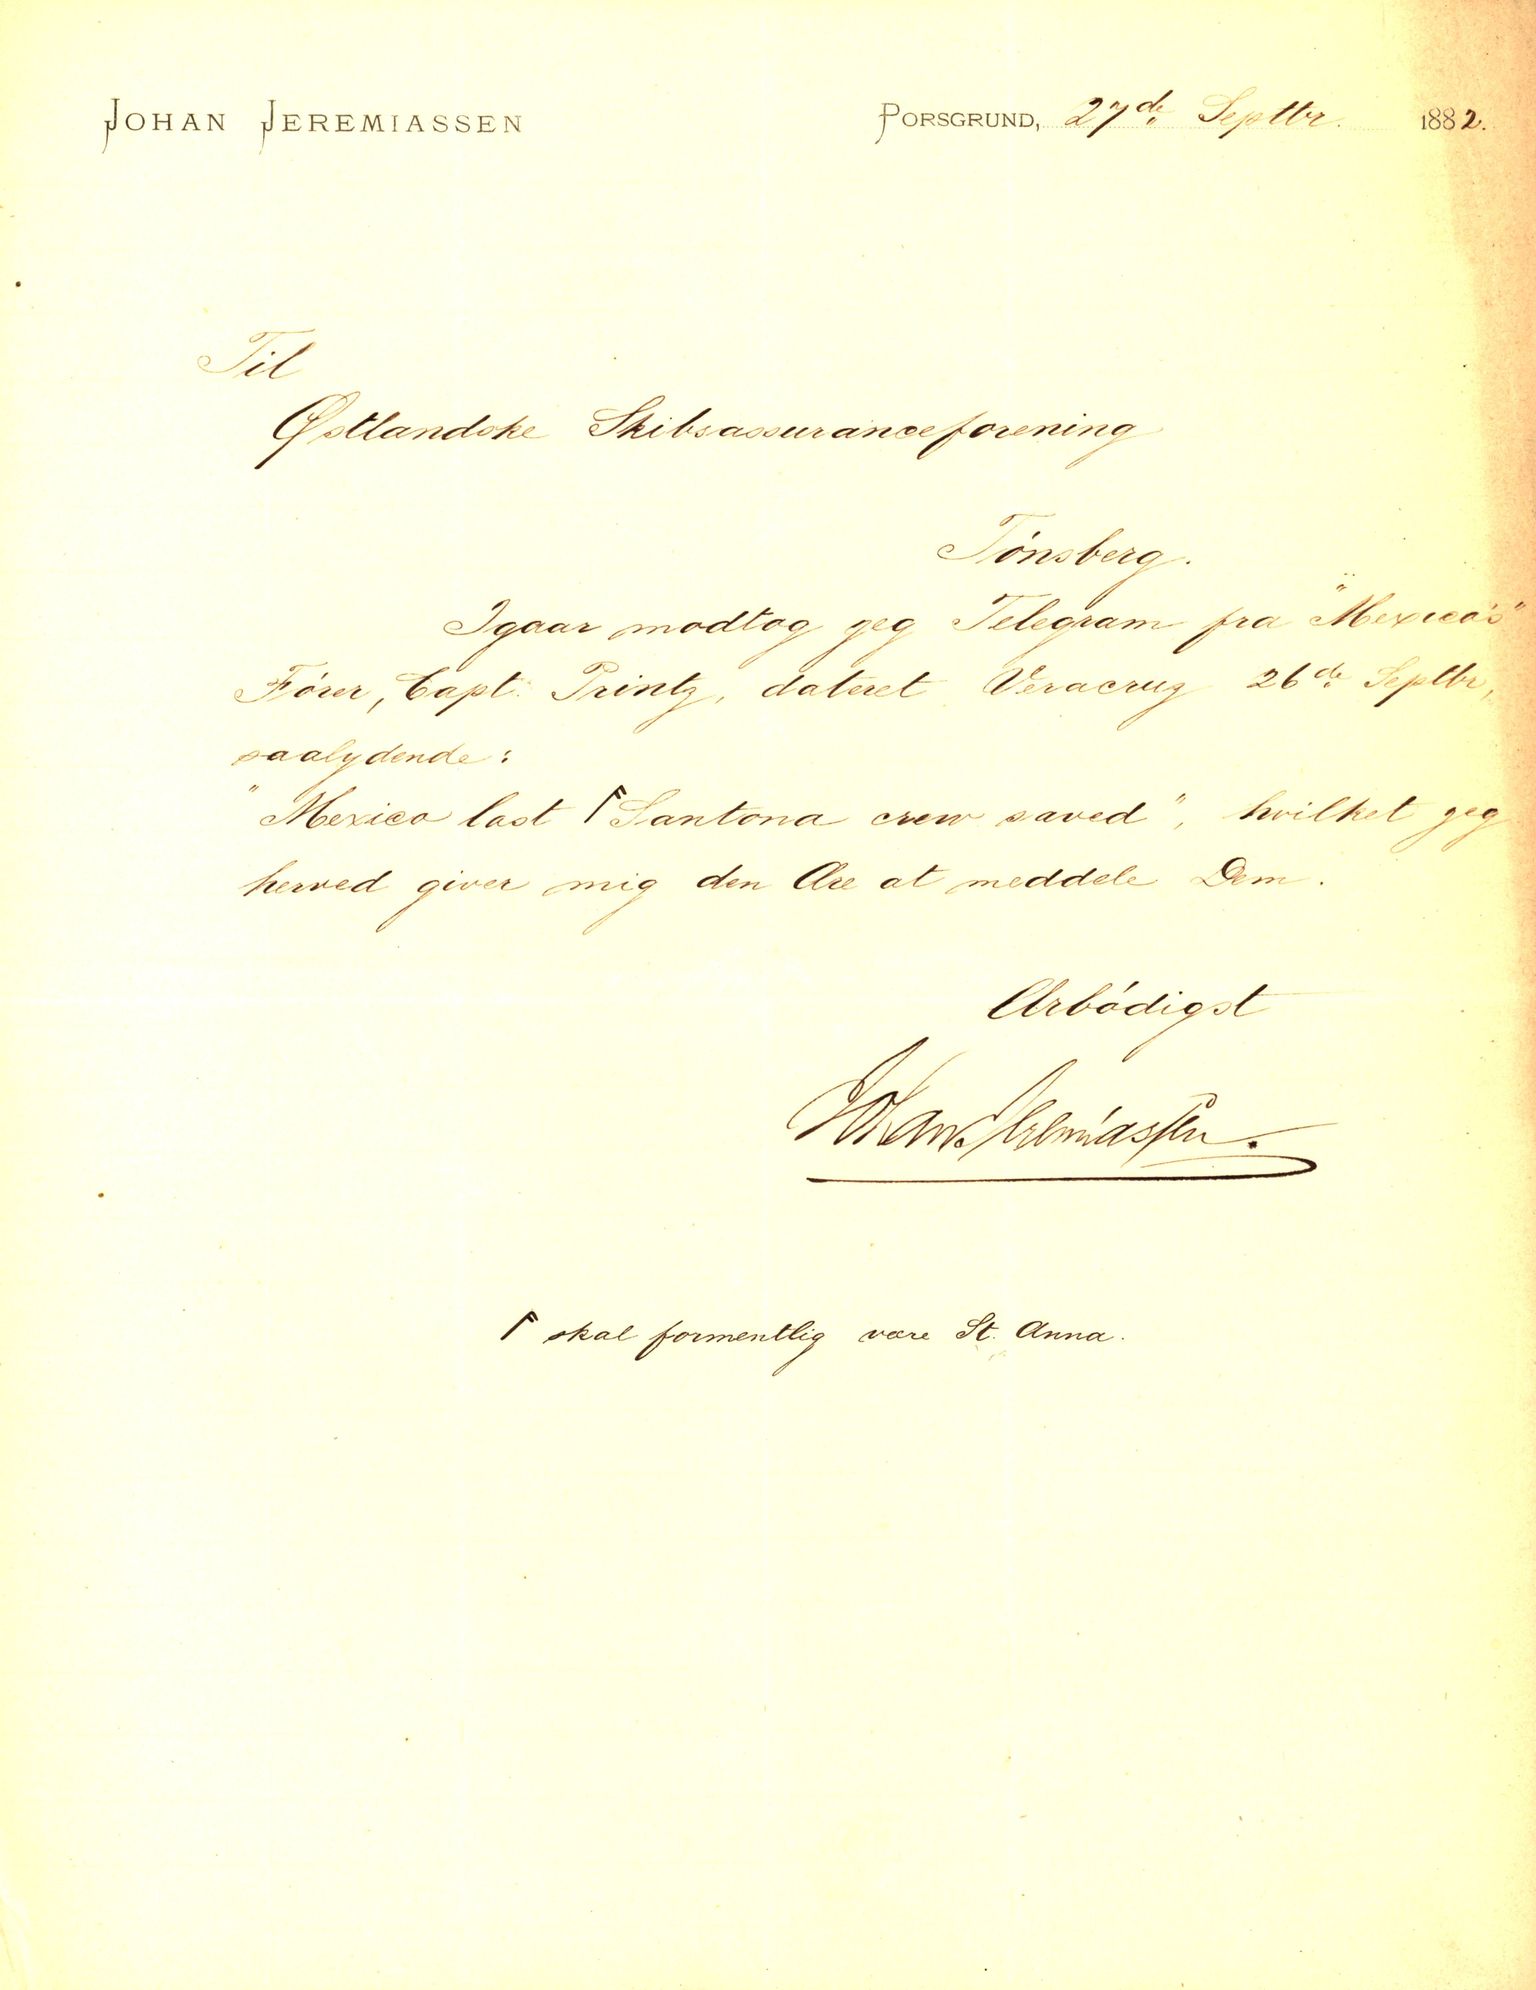 JOHAN JEREMIASSEN PORSGRUND, 27de Septbr. 1882.
Til
Østlandske Skibsassuranceforening
Tónsberg.
Igaar modtog jeg Telegram fra "Mexico's"
Fórer, Capt. Printz, dateret Veracruz 26de Septbr,
saalydende:
"Mexico lost ↾ Santona crew saved", hvilket jeg
herved giver mig den Ære at meddele Dem.
Ærbódigst
Johan Jeremiassen.
↾ skal formentlig være St. Anna.